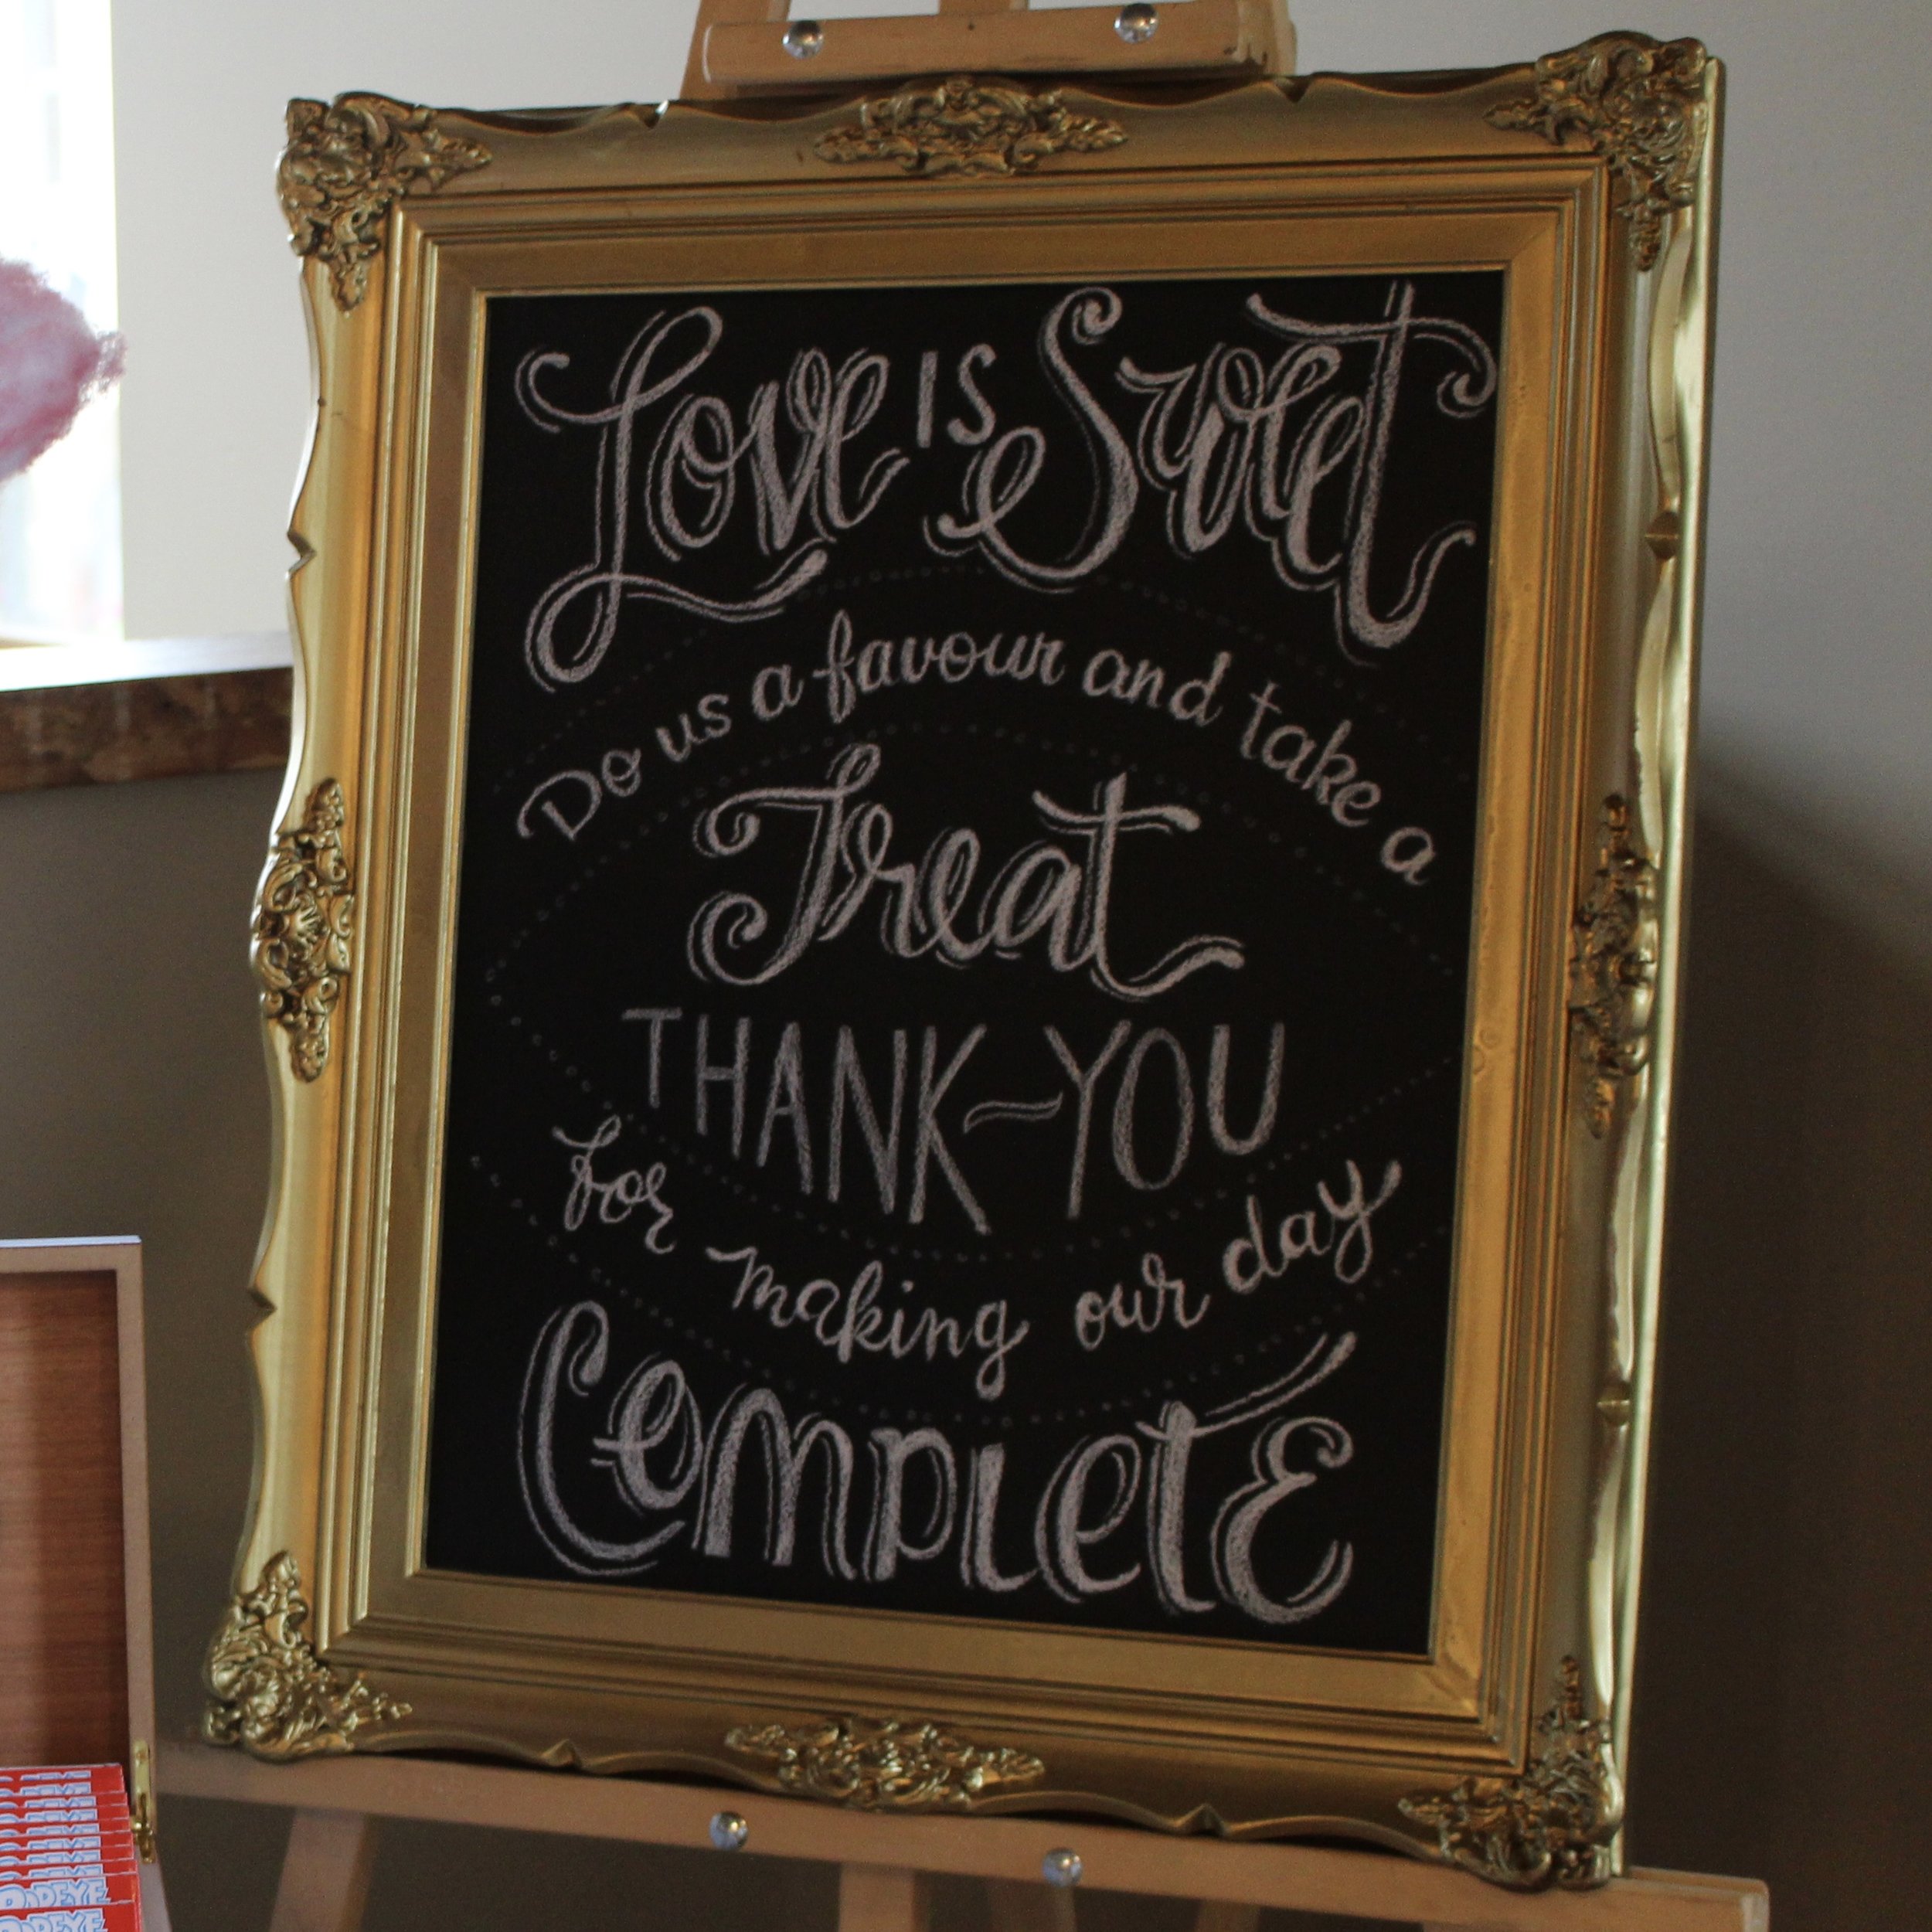 Love is Sweet
Do us a favour and take a
Treat
THANK-YOU
for making our day
COMPLETE
POPEYE
POPEYE